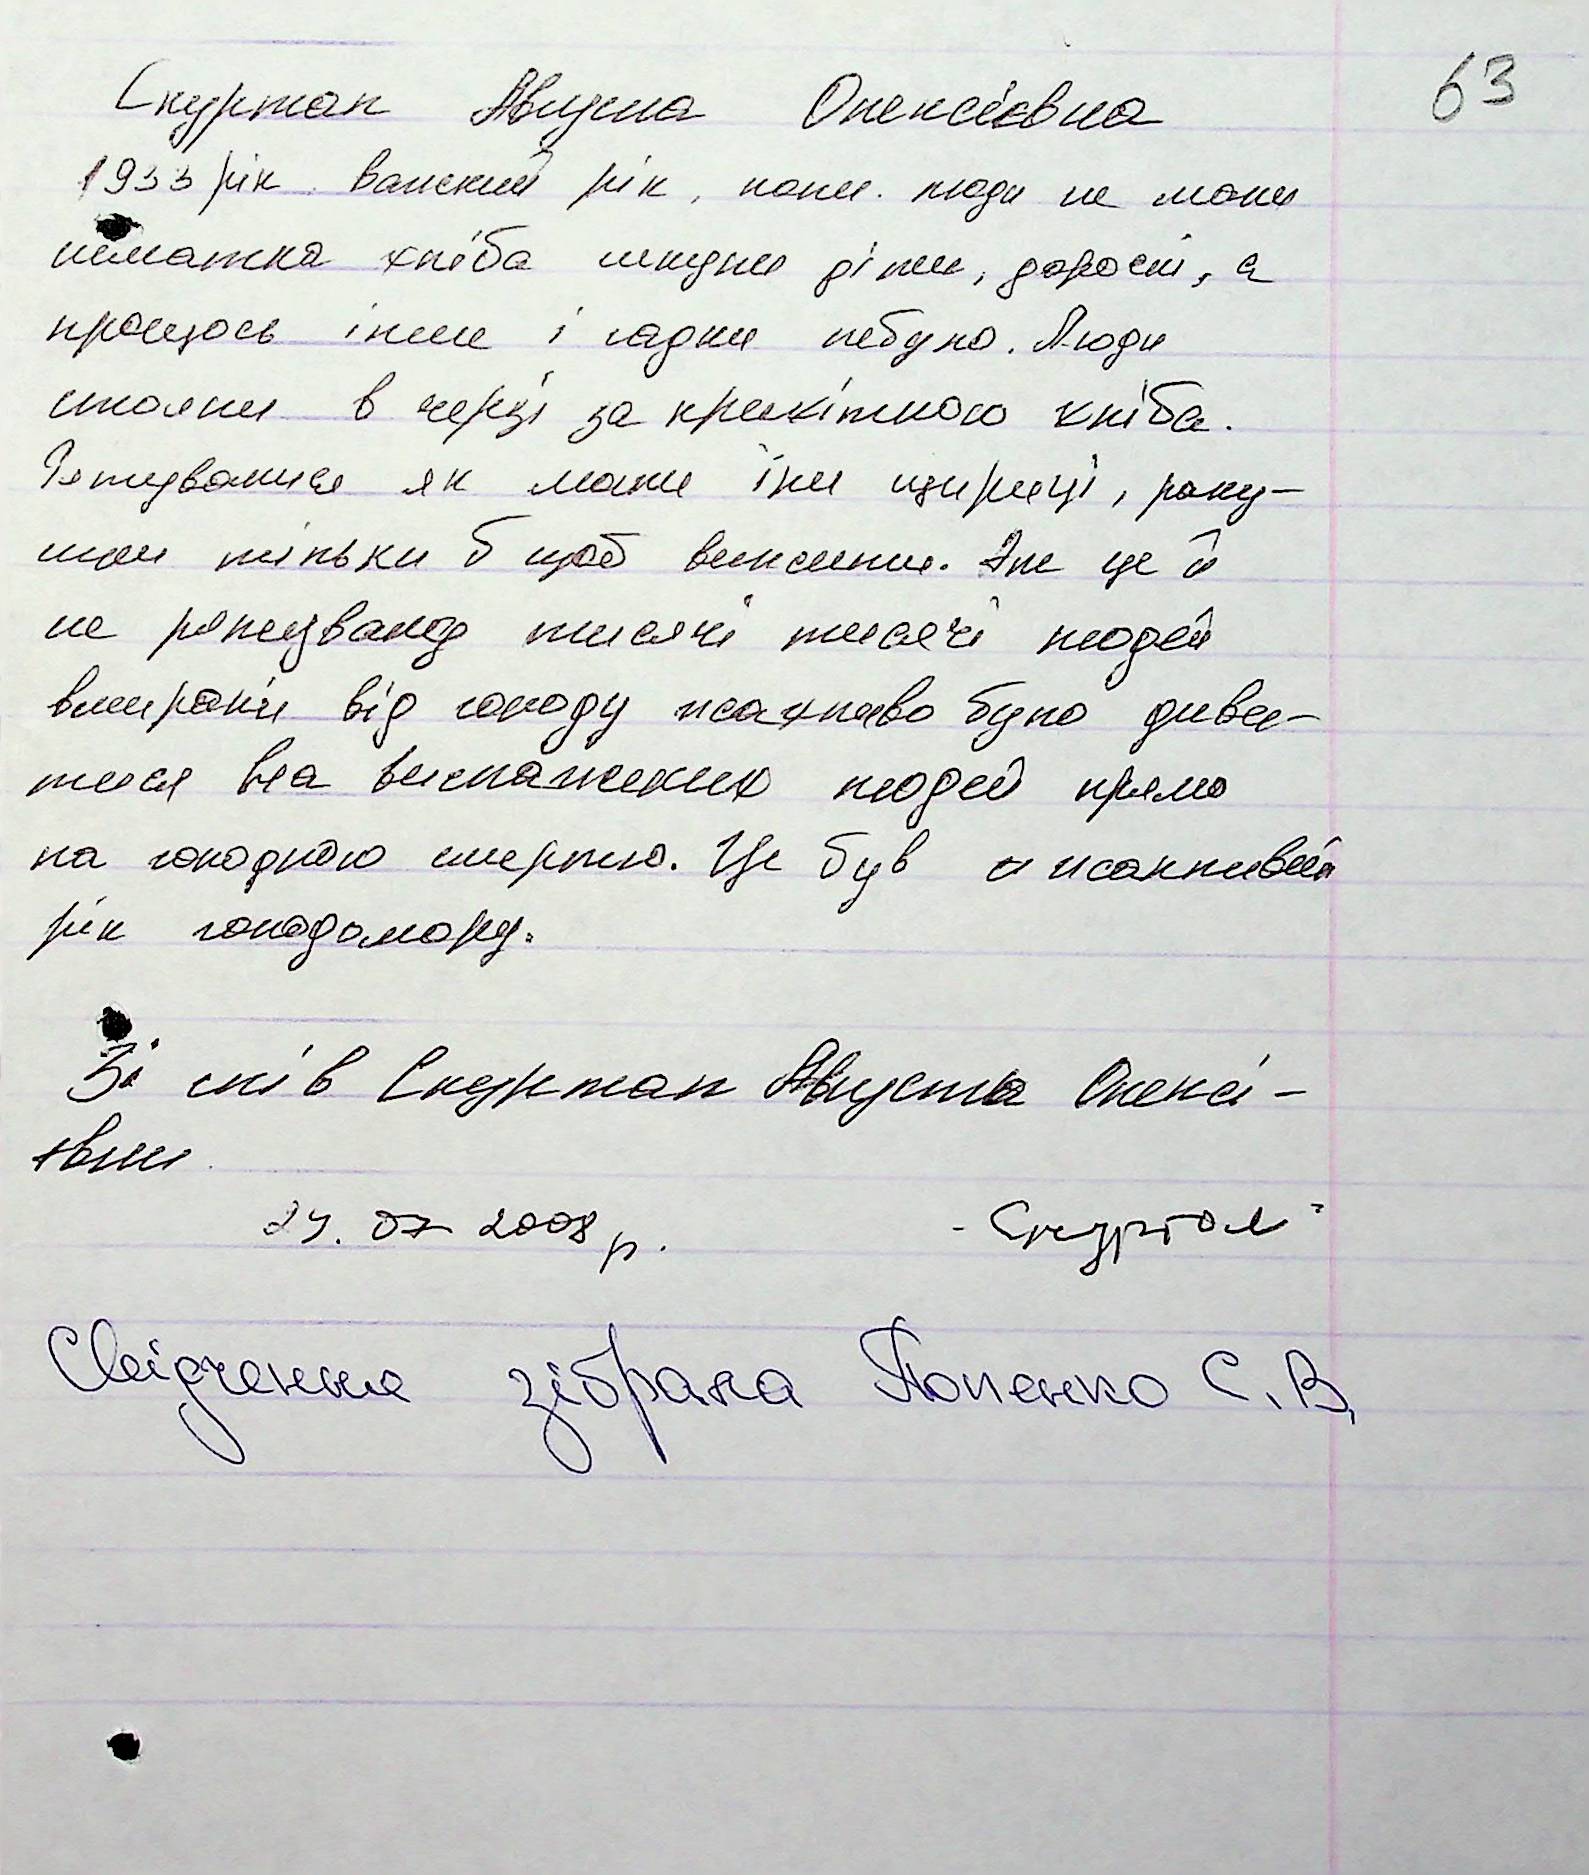 63
Скуртал Августа Олексієвна
1933 рік. важкий рік, коли. люди не мали
шматка хліба шкули діти, дорослі, а
прощось інше і гадки небуло. Люди
стояли в черзі за крихіткою хліба.
Рятувалися як могли їли щириці, раку-
шки тільки б щоб вижити. Але це й
не рятувало тисячі тисячі людей
вмирали від голоду жахливо було диви-
тися на виснажених людей прямо
на голодною смертю. Це був жахливий
рік голодомору.
Зі слів Скуртал Августа Олексі-
євни
24. 07 2008 р. - Скуртал
Свідчення зібрала Попенко С. В.